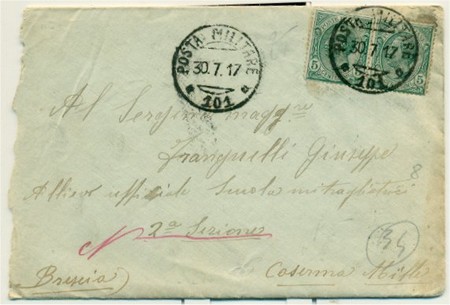 POSTA MILITARE
30.7.17
101
POSTA MILITARE
30.7.17
101
5 5
Al Sergente magg.re
Franquelli Giuseppe
Allievo ufficiale Scuola mitraglieri
2a Sezione
(Brescia)
Caserma
34
8